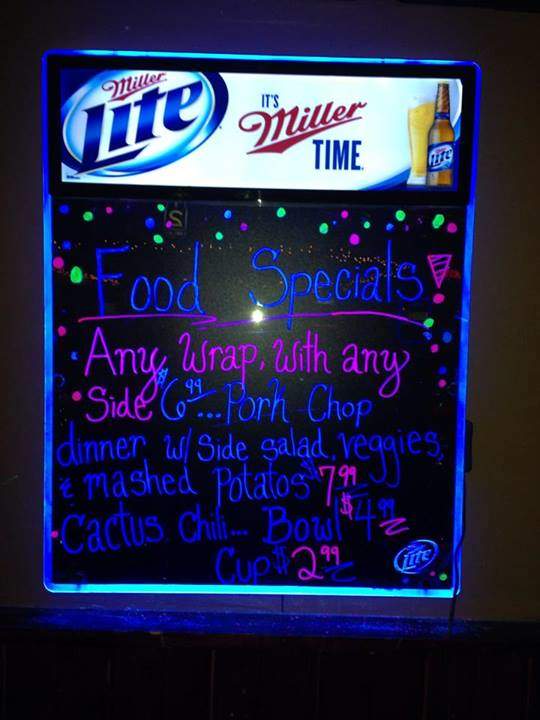 Miller
Lite
IT'S
Miller
TIME.
Lite
Food Specials!
Any Wrap, With any
Side $6.99... Pork Chop
dinner w/ Side salad, veggies,
& mashed Potatos $7.99
Cactus Chili... Bowl $4.99
Cup $2.99
Lite